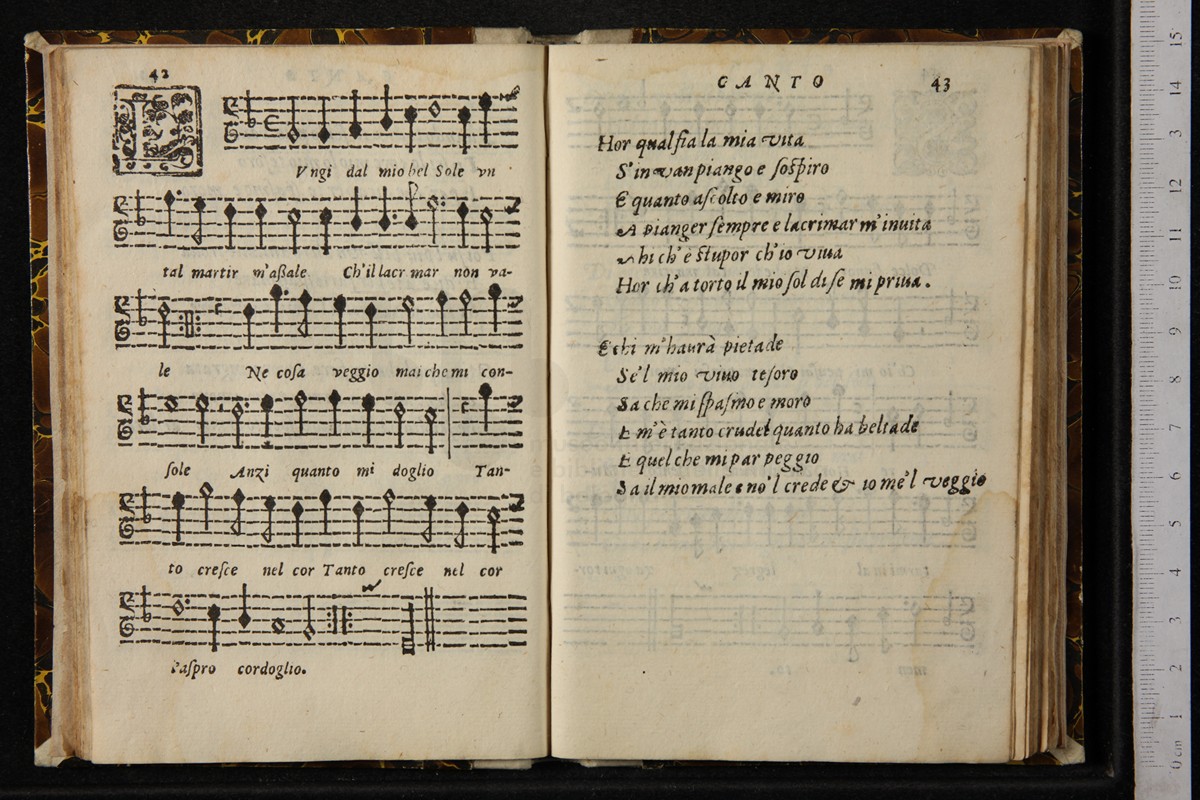 42
L Vngi dal mio bel Sole vn
tal martir m'aßale Ch'il lacr mar non va-
le Ne cosa veggio mai che mi con-
sole Anzi quanto mi doglio Tan-
to cresce nel cor Tanto cresce nel cor
l'aspro cordoglio.
CANTO 43
Hor qual sia la mia vita
S'in van piango e sospiro
E quanto ascolto e miro
A pianger sempre e lacrimar m'inuita
hi ch'è stupor ch'io viua
Hor ch'a torto il mio sol di se mi priua.
E chi m'haurà pietade
Se'l mio viuo tesoro
Sa che mi spasmo e moro
E m'è tanto crudel quanto ha beltade
E quel che mi par peggio
Sa il mio male e no'l crede & io me'l veggio
15
14
13
12
11
10
9
8
7
6
5
4
3
2
1
0 cm